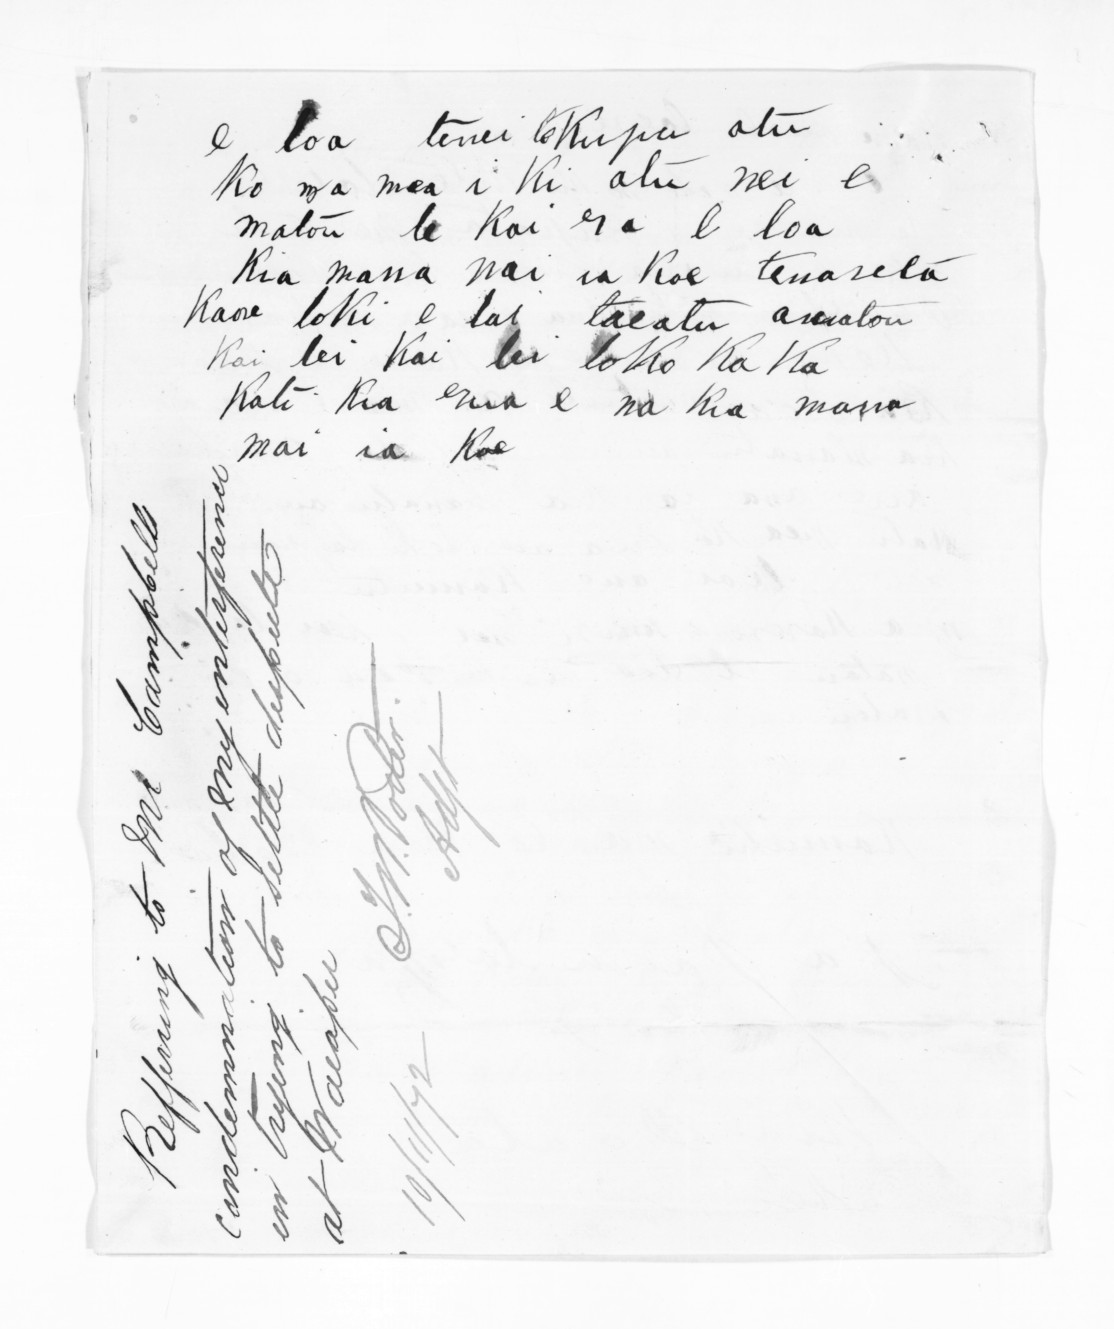 e toa tenei tokupu atu
Ko nga mea i ki atu nei e
matou te Kai era E toa
Kia mana mai ia koe tenaseta
Kaore toki e tai taeatu amatou
Kai tei Kai tei toko Ka Ka
Kati Kia ena e na Kia mana
mai ia Koe
Refferring to Mr Campbells
condemnation of my enterference
in trying to settle dispute
at Waeapu
T.W. Porter
Adjt
10/11/72